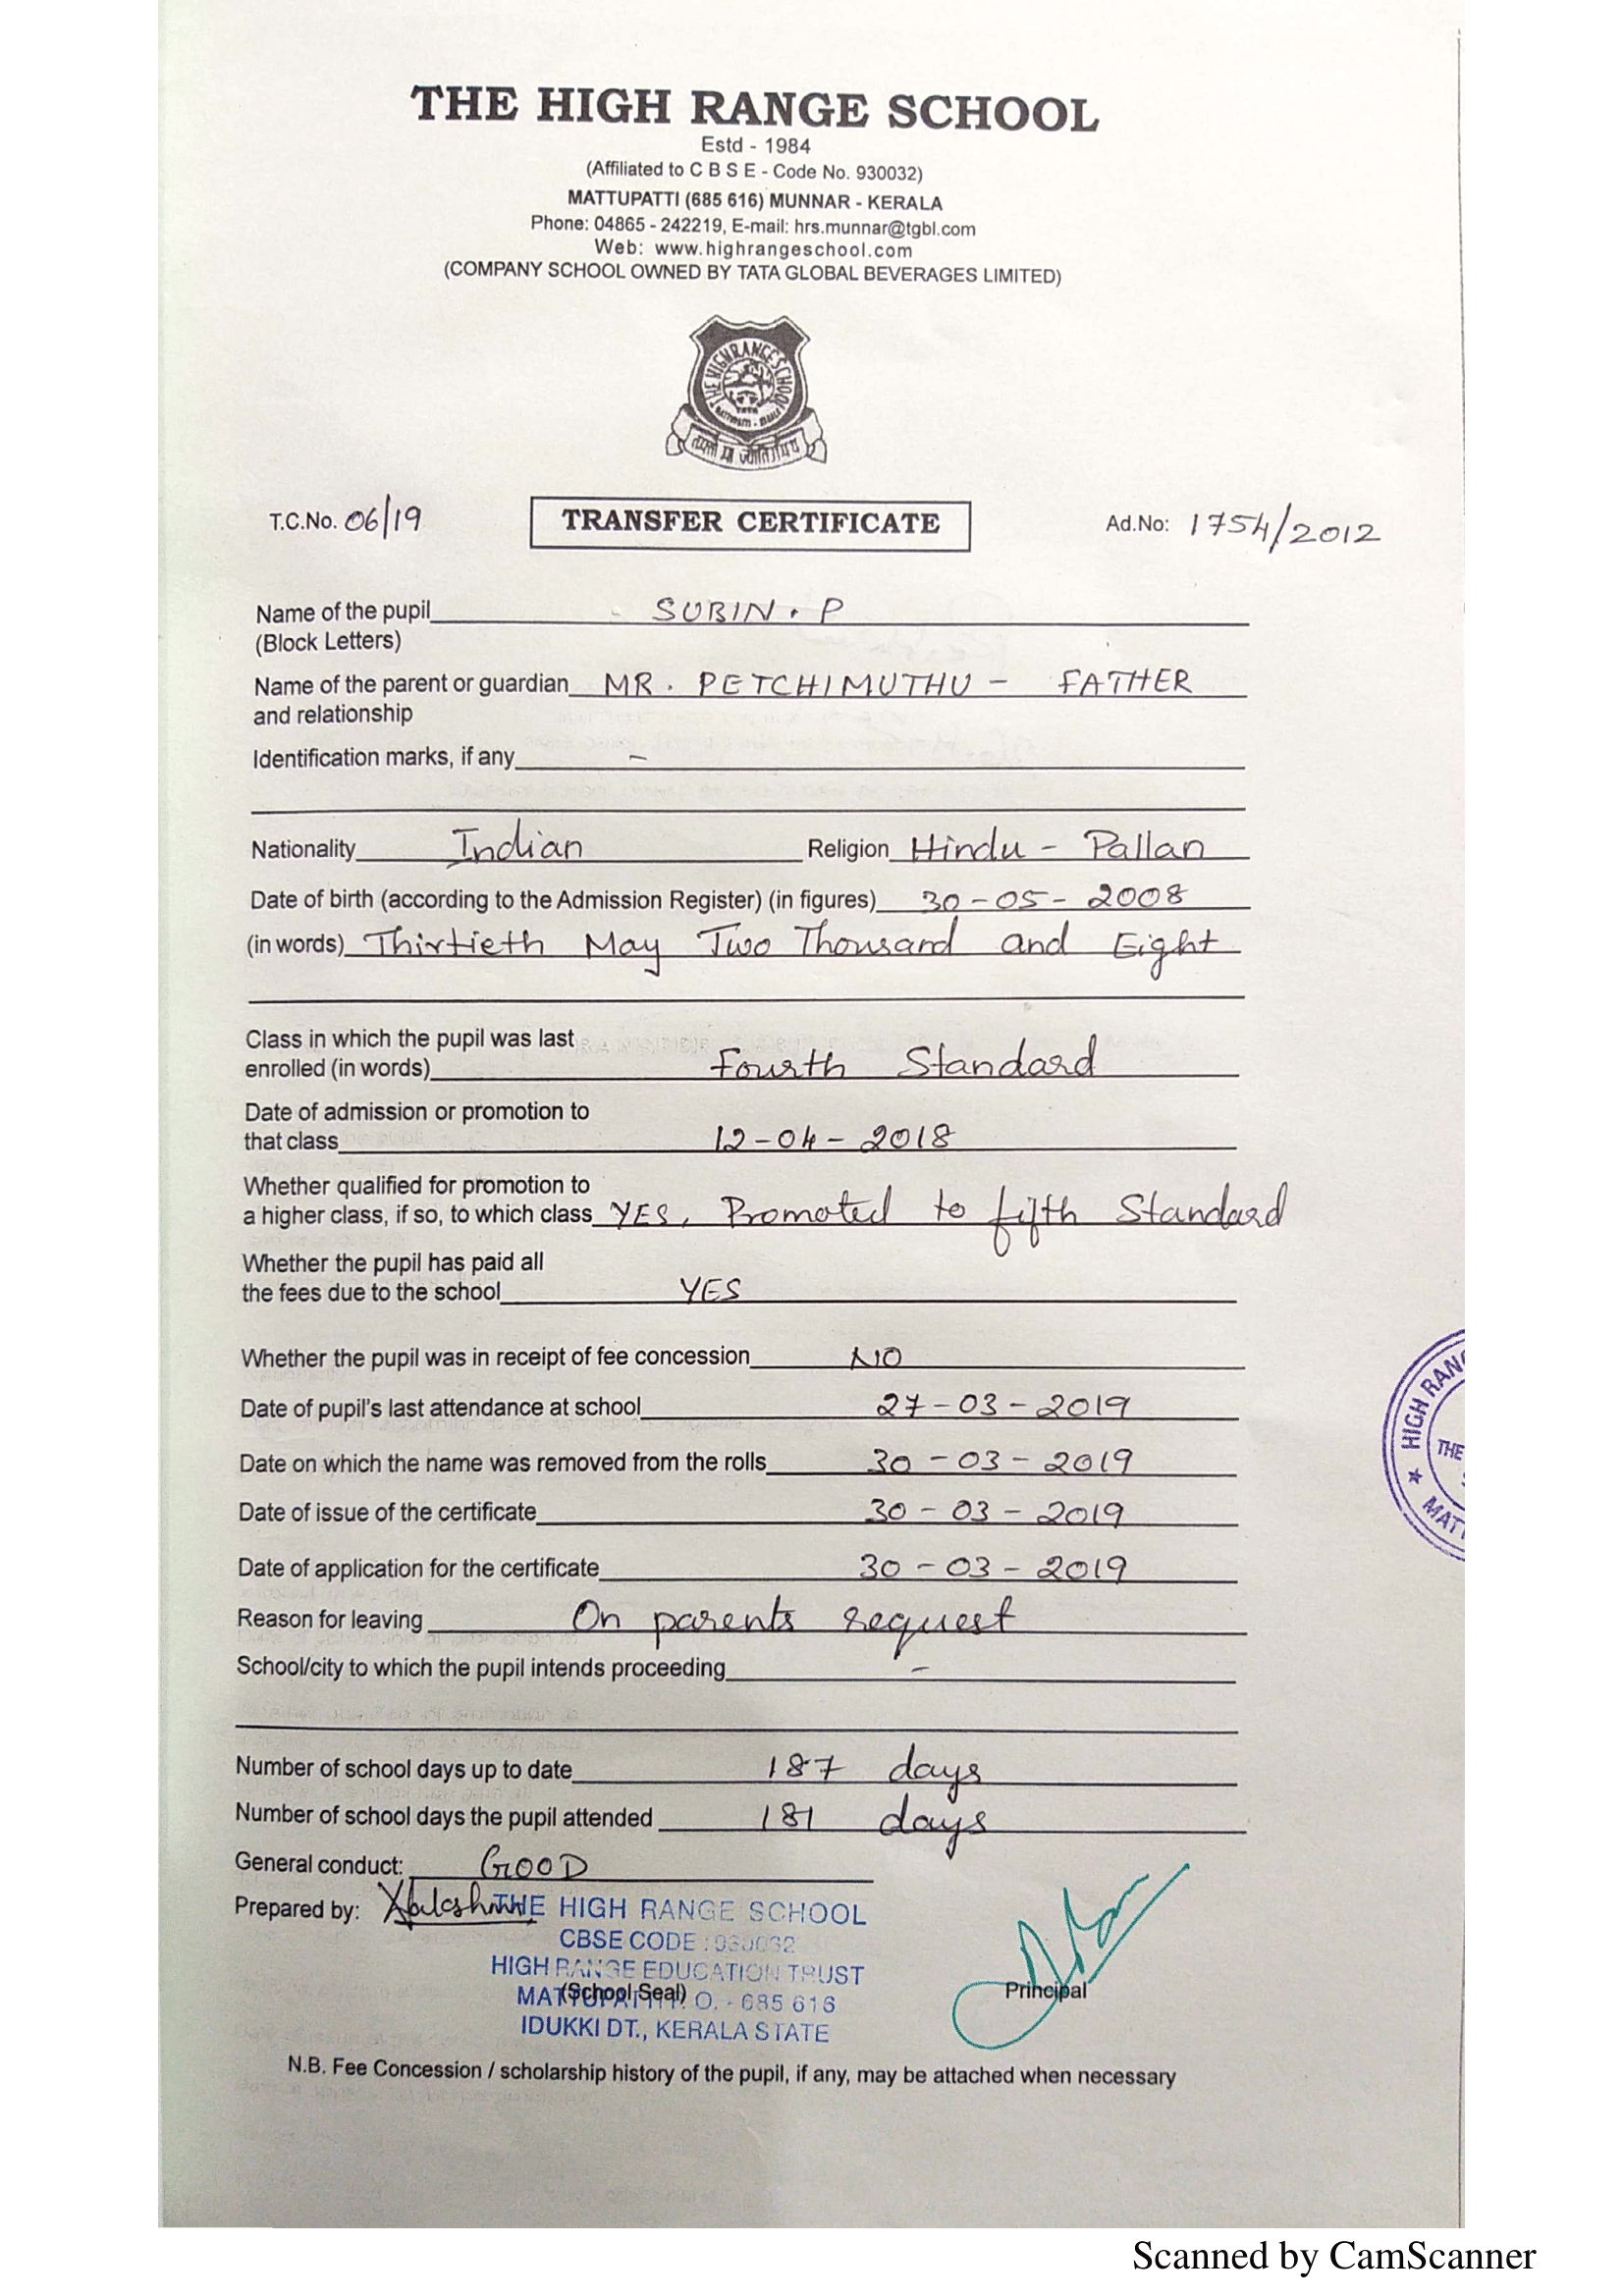 THE HIGH RANGE SCHOOL
Estd - 1984
(Affiliated to C B S E - Code No. 930032)
MATTUPATTI (685 616) MUNNAR - KERALA
Phone: 04865 - 242219, E-mail: hrs.munnar@tgbl.com
Web: www.highrangeschool.com
(COMPANY SCHOOL OWNED BY TATA GLOBAL BEVERAGES LIMITED)
THE HIGH RANGE SCHOOL
T.C.No. 06/19 TRANSFER CERTIFICATE Ad.No: 1754/2012
Name of the pupil SUBIN. P
(Block Letters)
Name of the parent or guardian MR. PETCHIMUTHU - FATHER
and relationship
Identification marks, if any -
Nationality Indian Religion Hindu - Pallan
Date of birth (according to the Admission Register) (in figures) 30-05-2008
(in words) Thirtieth May Two Thousand and Eight
Class in which the pupil was last
enrolled (in words) Fourth Standard
Date of admission or promotion to
that class 12-04-2018
Whether qualified for promotion to
a higher class, if so, to which class YES, Promoted to fifth Standard
Whether the pupil has paid all
the fees due to the school YES
Whether the pupil was in receipt of fee concession NO
Date of pupil's last attendance at school 27-03-2019
Date on which the name was removed from the rolls 30-03-2019
Date of issue of the certificate 30-03-2019
Date of application for the certificate 30-03-2019
Reason for leaving On parents request
School/city to which the pupil intends proceeding -
Number of school days up to date 187 days
Number of school days the pupil attended 181 days
General conduct: GOOD
Prepared by: THE HIGH RANGE SCHOOL
CBSE CODE : 930032
HIGH RANGE EDUCATION TRUST
(School Seal) Principal
MATTUPATTI P. O. - 685 616
IDUKKI DT., KERALA STATE
HIGH RAN
THE
MATT
N.B. Fee Concession / scholarship history of the pupil, if any, may be attached when necessary
Scanned by CamScanner